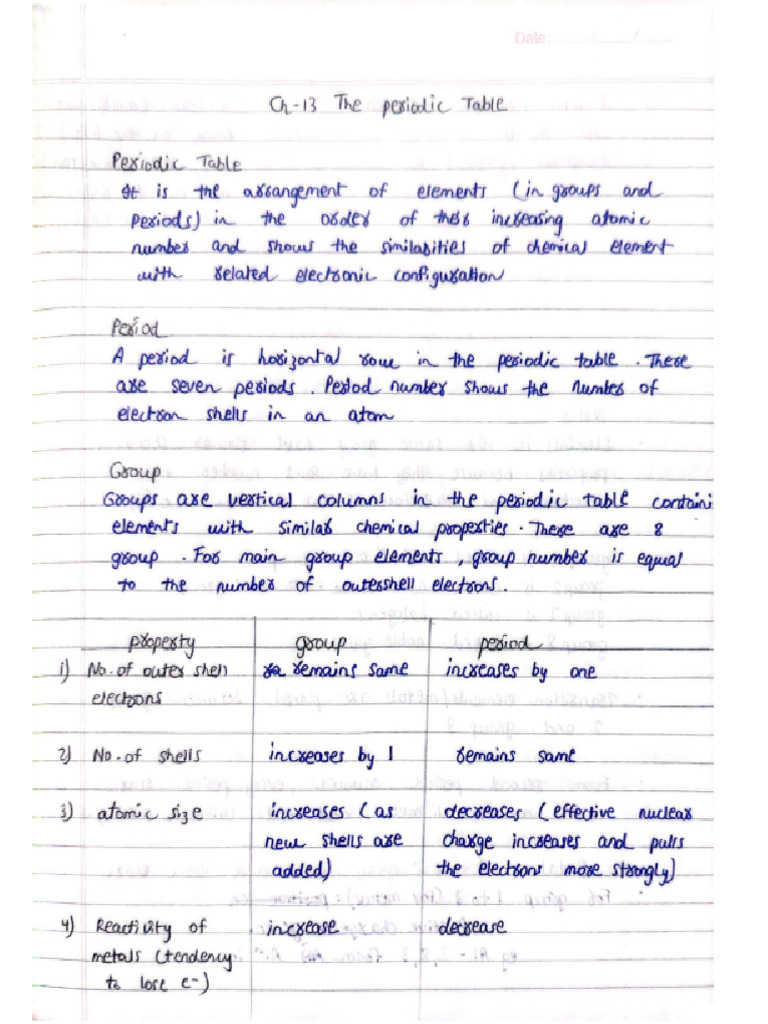 Date:
Ch-13 The periodic Table
Periodic Table
It is the arrangement of elements (in groups and
periods) in the order of their increasing atomic
number and shows the similarities of chemical element
with related electronic configuration
Period
A period is horizontal row in the periodic table. There
are seven periods. Period number shows the number of
electron shells in an atom
Group
Groups are vertical columns in the periodic table containi
elements with similar chemical properties. There are 8
group. For main group elements, group number is equal
to the number of outershell electrons.
property group period
1) No. of outer shell remains same increases by one
electrons
2) No. of shells increases by 1 remains same
3) atomic size increases (as decreases (effective nuclear
new shells are charge increases and pulls
added) the electrons more strongly)
4) Reactivity of increase decrease
metals (tendency
to lose e-)